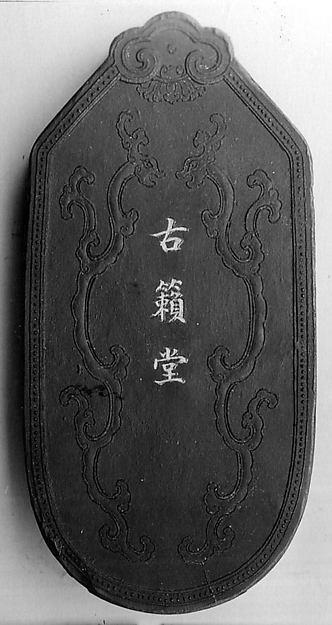 古籟堂